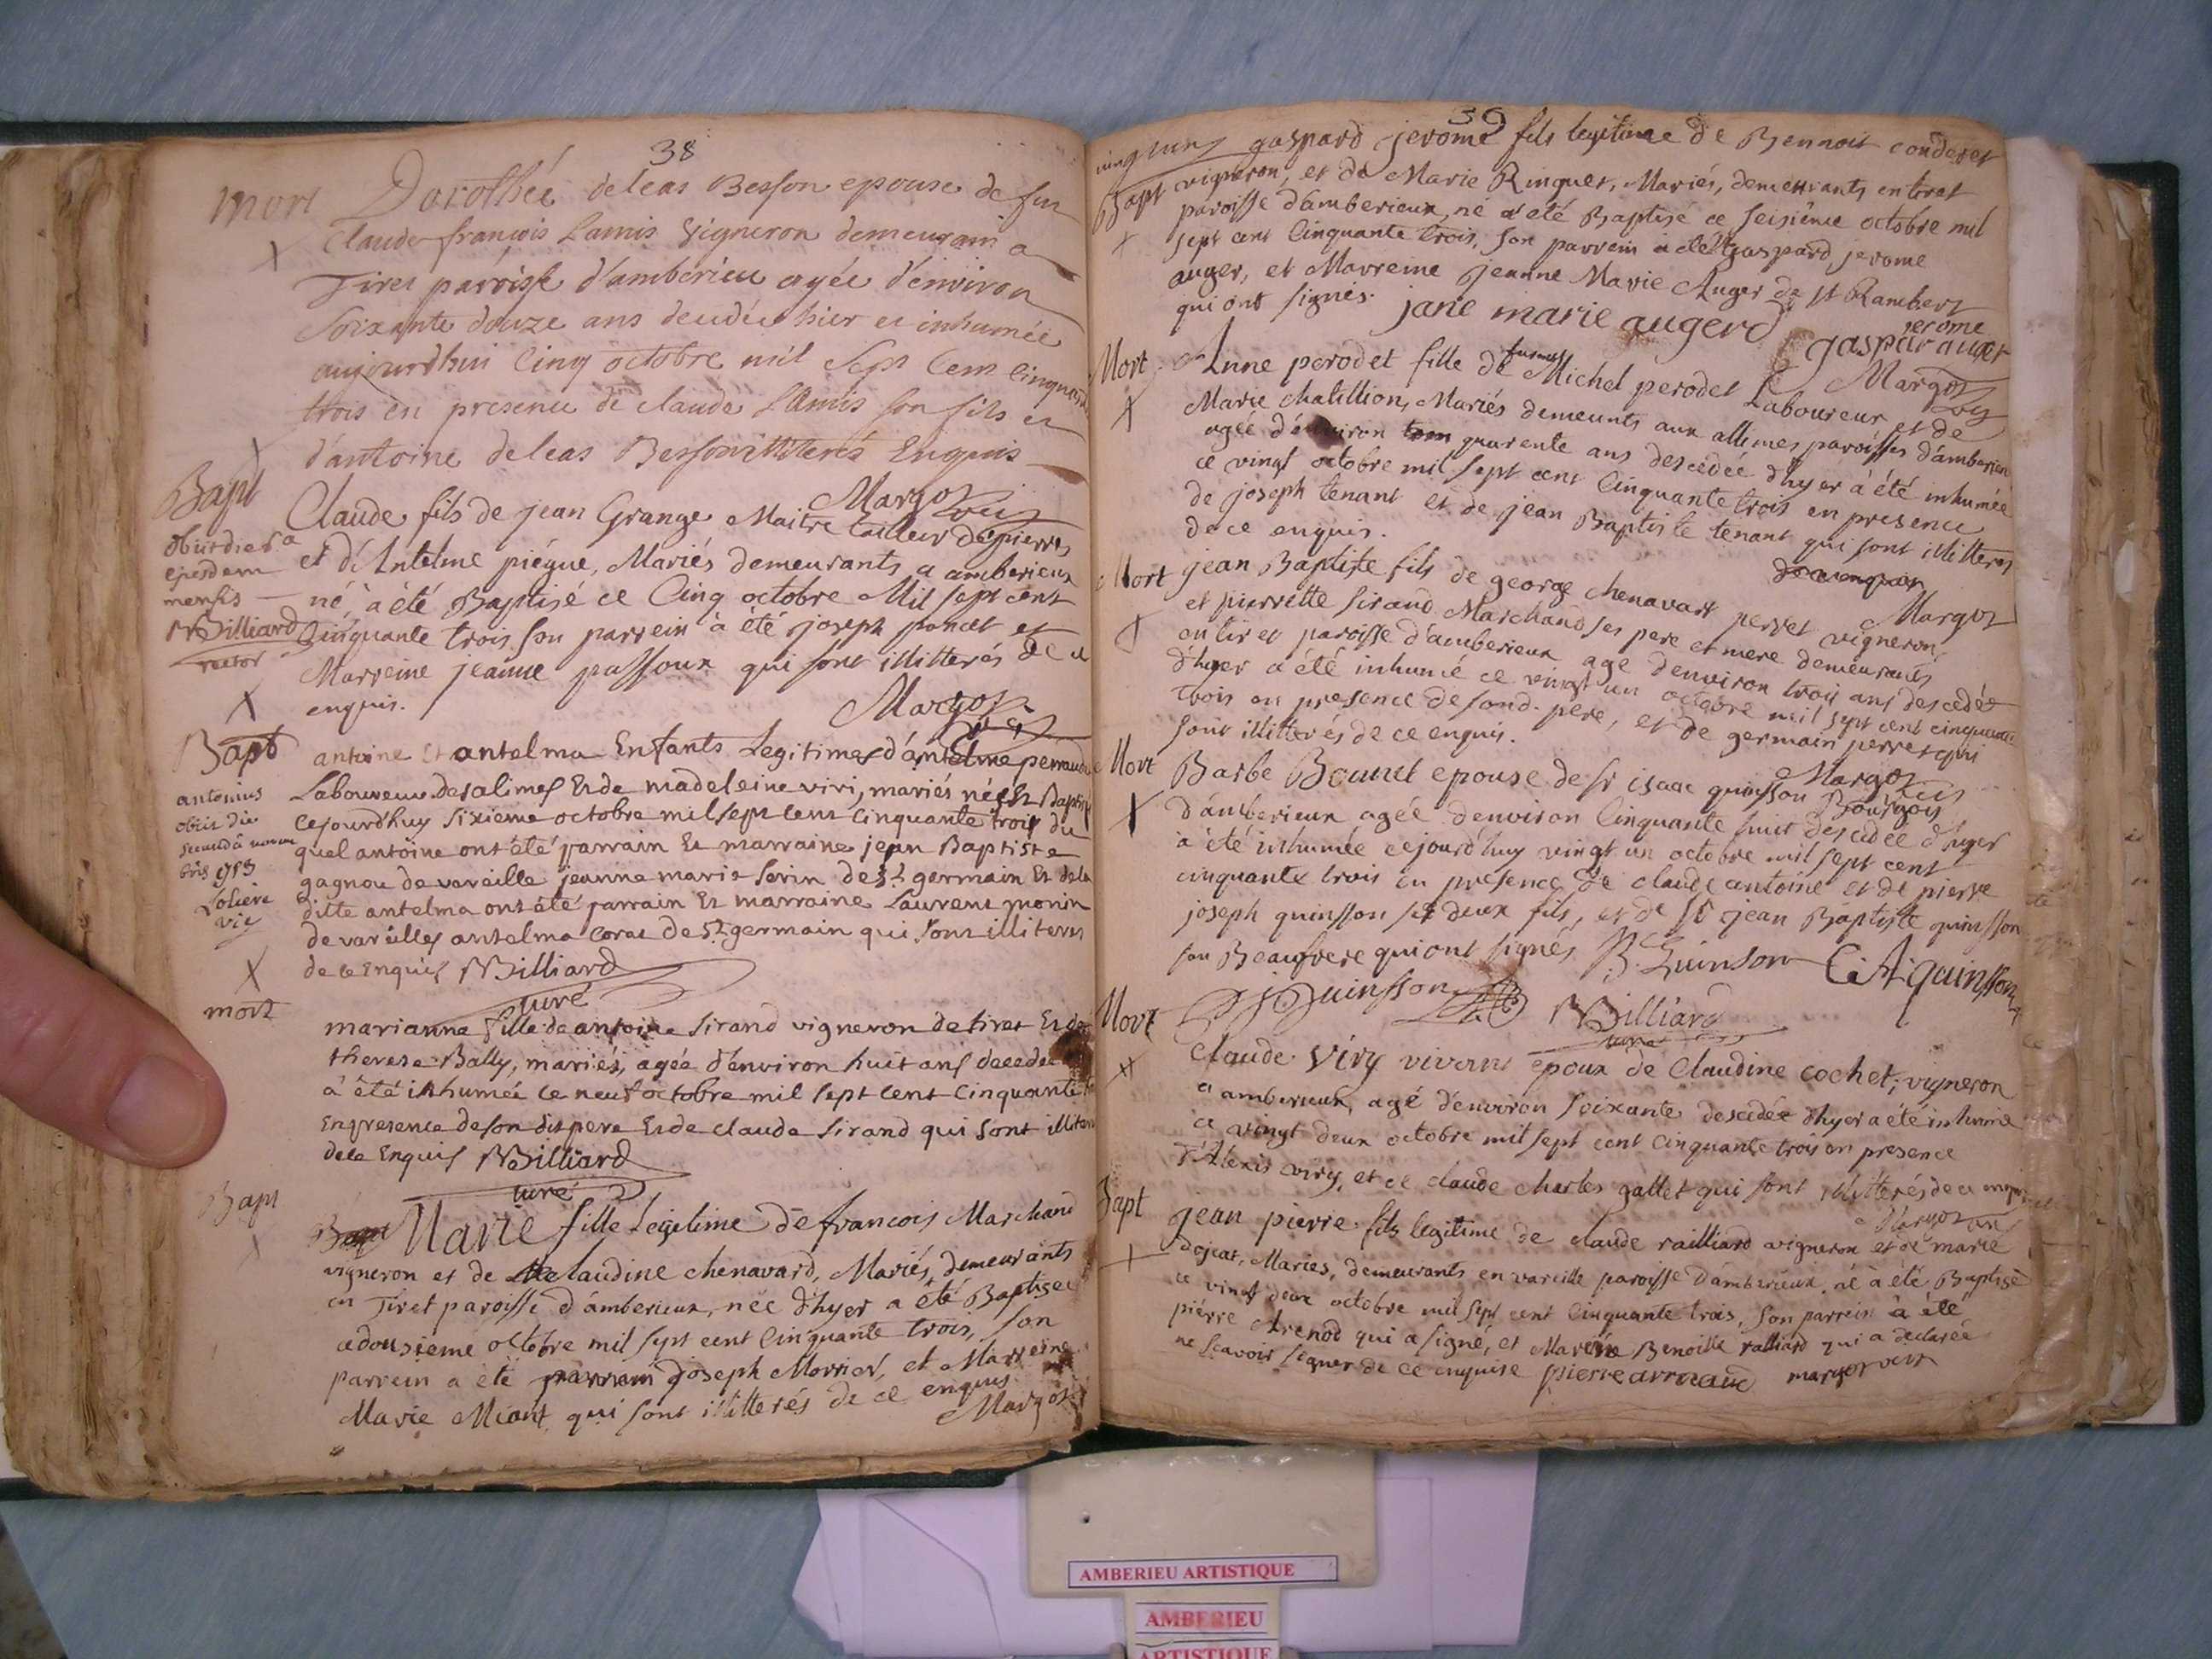 38
mort Dorothée deleas Besson epouse de feu
Claude françois Lamis Vigneron demeurant a
Tiret paroisse d'amberieu agée d'environ
soixante douze ans decedée hier et inhumée
aujourdhui cinq octobre mil sept cent cinquante
trois en presence de claude Lamis son fils et
d'antoine deleas Besson illiterés Enquis
Margot vic
Bapt
Claude fils de jean Grange Maitre tailleur de pierres
et d'Antelme piégue, Mariés demeurants a amberieux
né, à été Baptisé ce Cinq octobre Mil sept cent
Cinquante trois son parrein à été joseph poncet et
Marreine jeanne passoux qui sont illitterés de ce
enquis.
Margot vic
obiit die 8a
ejusdem
mensis
Billiard
rector
Bapt
antoine Et antelma Enfants Legitimes d'antelme perraud
Laboureur des alimes Et de madeleine viri, mariés nés Et Baptisés
cejourdhuy sixieme octobre mil sept cent cinquante trois du
quel antoine ont été parrain Et marraine jean Baptiste
gagnou de vareille jeanne marie serin de st germain Et de la
ditte antelma ont été parrain Et marraine Laurent monin
de vareilles antelma corat de St germain qui sont illiterés
de ce Enquis Billiard
curé
antonius
obiit die
secundâ novem
bris 1753
Loliere
vic
mort
marianne fille de antoine sirand vigneron de tiret Et de
therese Bally, mariés, agée d'environ huit ans decedée
à été inhumée ce neuf octobre mil sept cent cinquante
En presence de son dit pere Et de claude sirand qui sont illiterés
de ce Enquis Billiard
curé
Bapt
Marie fille Legitime de francois Marchand
vigneron et de claudine chenavard, Mariés, demeurants
en Tiret paroisse d'amberieux, née d'hyer a été Baptisée
ce dousieme octobre mil sept cent cinquante trois, son
parrein a été joseph Morrier, et Marreine
Marie Miant qui sont illitterés de ce enquis
Margot
39
gaspard jerome fils legitime de Bennoit conderet
Bapt vigneron, et de Marie Ringuet, Mariés, demeurants en tiret
paroisse d'amberieux, né a été Baptisé ce seisième octobre mil
sept cent cinquante trois, son parrein a été gaspard jerome
auger, et Marreine jeanne Marie Auger de st Rambert
qui ont signés. jane marie augerd gaspar jerome auger
Margot vic
Mort Anne perodet fille de Michel perodet Laboureur et de
Marie chatillion, Mariés demeurts aux allimes paroisses d'amberieu
agée d'environ quarente ans descedée d'hyer à été inhumée
ce vingt octobre mil sept cent cinquante trois en presence
de joseph tenant et de jean Baptiste tenant qui sont illitterés
de ce enquis.
Margot
Mort jean Baptiste fils de george chenavart perret vigneron
et pierrette sirand Marchand ses pere et mere demeurants
en tiret paroisse d'amberieux agé denviron trois ans descedée
d'hyer a été inhumé ce vingt un octobre mil sept cent cinquante
trois en presence de son d. pere, et de germain perret qui
sont illitterés de ce enquis.
Margot vic
Mort Barbe Bonnet epouse de sr isaac quinsson Bourgois
d'amberieux agée denviron Cinquante huit descedée d'hyer
à été inhumée cejourd'huy vingt un octobre mil sept cent
cinquante trois en presence de claude antoine et de pierre
joseph quinsson ses deux fils, et de sr jean Baptiste quinsson
son Beaufrere qui ont signés B. Quinson C. A. quinsson
P j Quinsson Billiard
curé
Mort
Claude viry vivant epoux de Claudine cochet, vigneron
a amberieux, agé denviron soixante descedée d'hyer a été inhumé
ce vingt deux octobre mil sept cent cinquante trois en presence
d'Alexis viry, et de claude charles gallet qui sont illitterés de ce enquis
Margot vic
Bapt
jean pierre fils legitime de claude railliard vigneron et de marie
dejeat, Mariés, demeurants en vareille paroisse d'amberieux, né a été Baptisé
ce vingt deux octobre mil sept cent cinquante trois, son parrein à été
pierre Arenod qui a signé, et Mareine Benoitte ralliard qui a declarée
ne scavoir signer de ce enquise pierre arnaud margot vict
AMBERIEU ARTISTIQUE
AMBERIEU
ARTISTIQUE